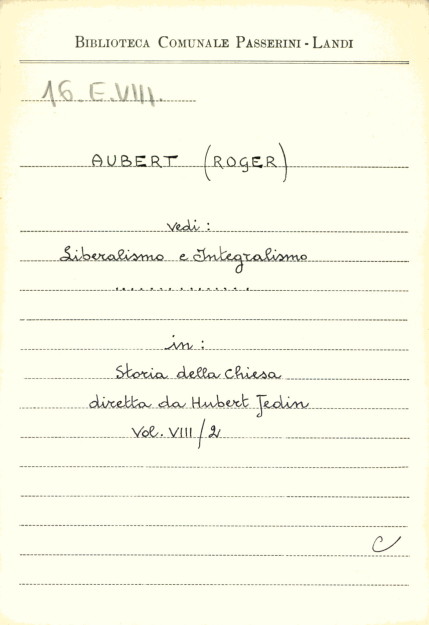 BIBLIOTECA COMUNALE PASSERINI - LANDI
16. E. VIII.
AUBERT (ROGER)
vedi :
Liberalismo e Integralismo
...............
in :
Storia della Chiesa
diretta da Hubert Jedin
Vol. VIII/2
C